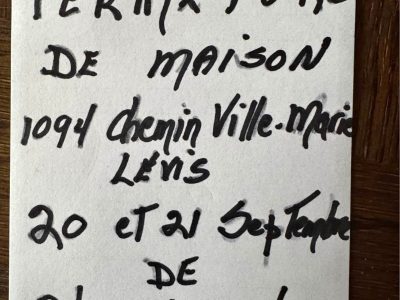 DE MAISON
1094 Chemin Ville-Marie
LÉVIS
20 ET 21 SEPTEMBRE
DE